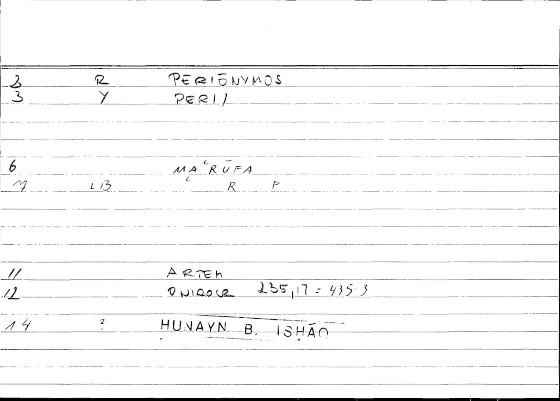 2 R PERIŌNYMOS
3 Y PERI/
6 MAʿRŪFA
M LB ʿ R F
11 ARTEM
12 ONIROCR 235,17 = 435.3
14 ? HUNAYN B. ISHĀQ